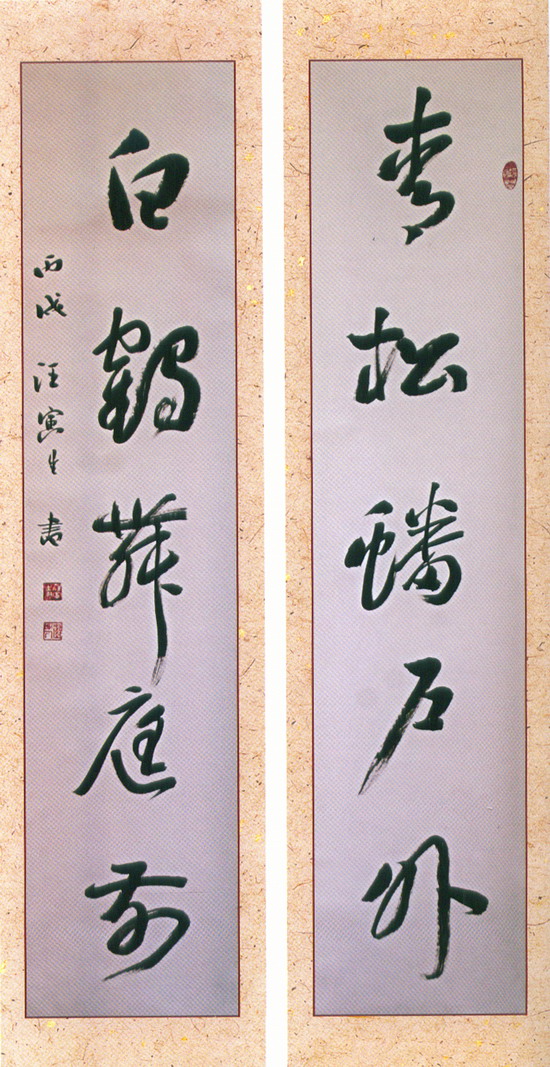 青松蟠户外
白鹤舞庭前
丙戌 汪寅生 书